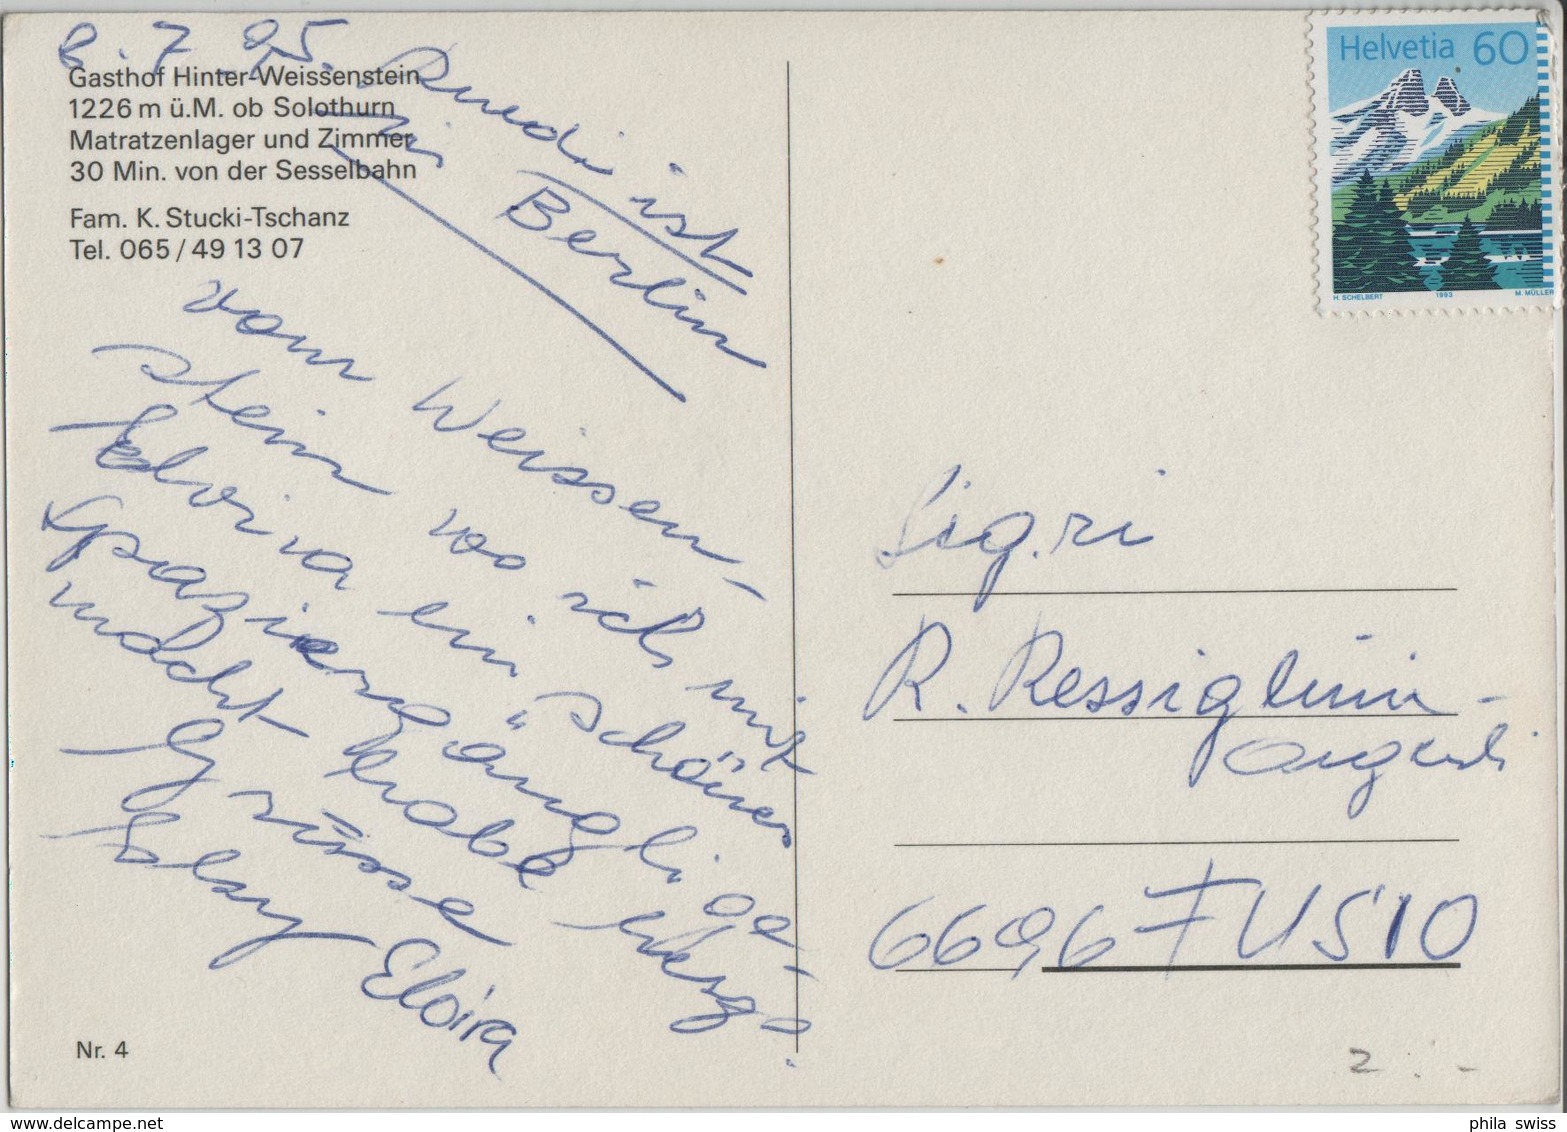 8.7.95.
Gasthof Hinter-Weissenstein
1226 m ü.M. ob Solothurn
Matratzenlager und Zimmer
30 Min. von der Sesselbahn
Fam. K. Stucki-Tschanz
Tel. 065/49 13 07
Ruedi ist
in Berlin
vom Weissen-
stein wo ich mit
Elvira ein schönes
Spaziergängli ge-
macht habe
Grüsse
Elsy
Elvira
Nr. 4
Helvetia 60
H. SCHELBERT 1993 M. MÜLLER
Sig.ri
R. Ressiglini-
6696 FUSIO
2.-
www.delcampe.net
phila_swiss